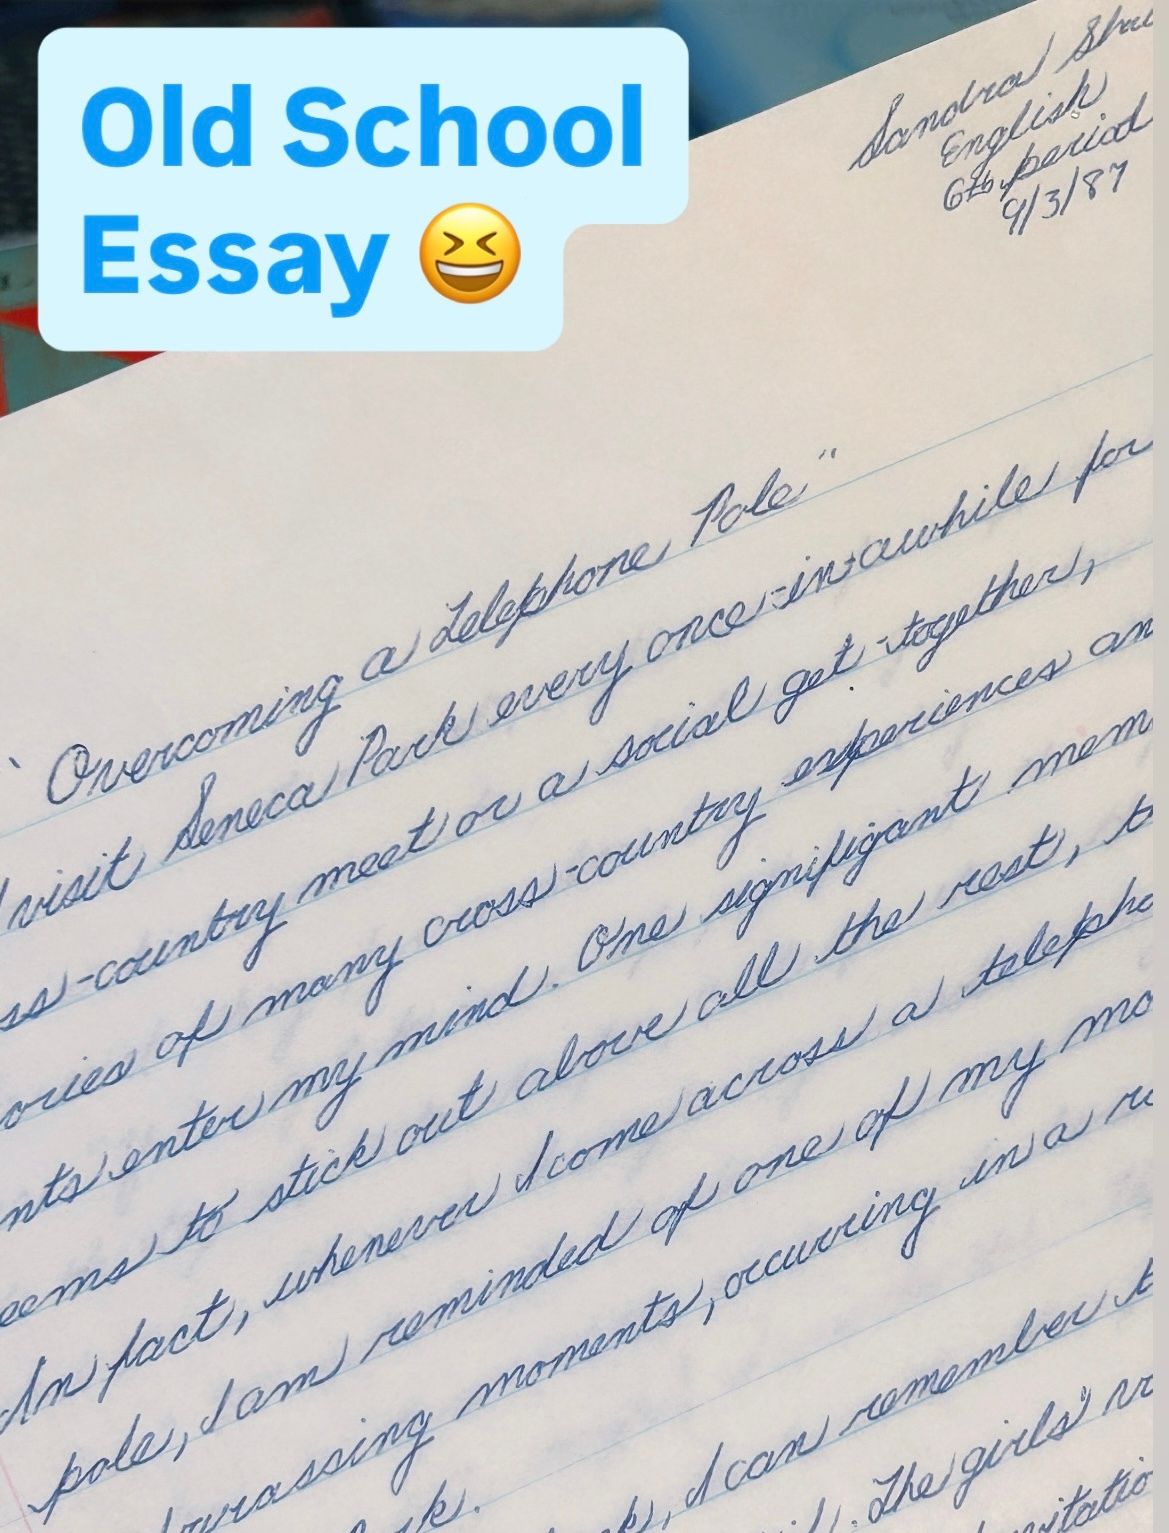 Old School
Essay 😆
Sandra
English
6th period
9/3/87
"Overcoming a Telephone Pole"
I visit Seneca Park every once-in-awhile for
ss-country meet or a social get-together,
ories of many cross-country experiences an
nts enter my mind. One signifigant mem
eems to stick out above all the rest, t
In fact, whenever I come across a telepho
pole, I am reminded of one of my mo
rrassing moments, occurring in a r
rk.
k, I can remember t
The girls' v
vitatio